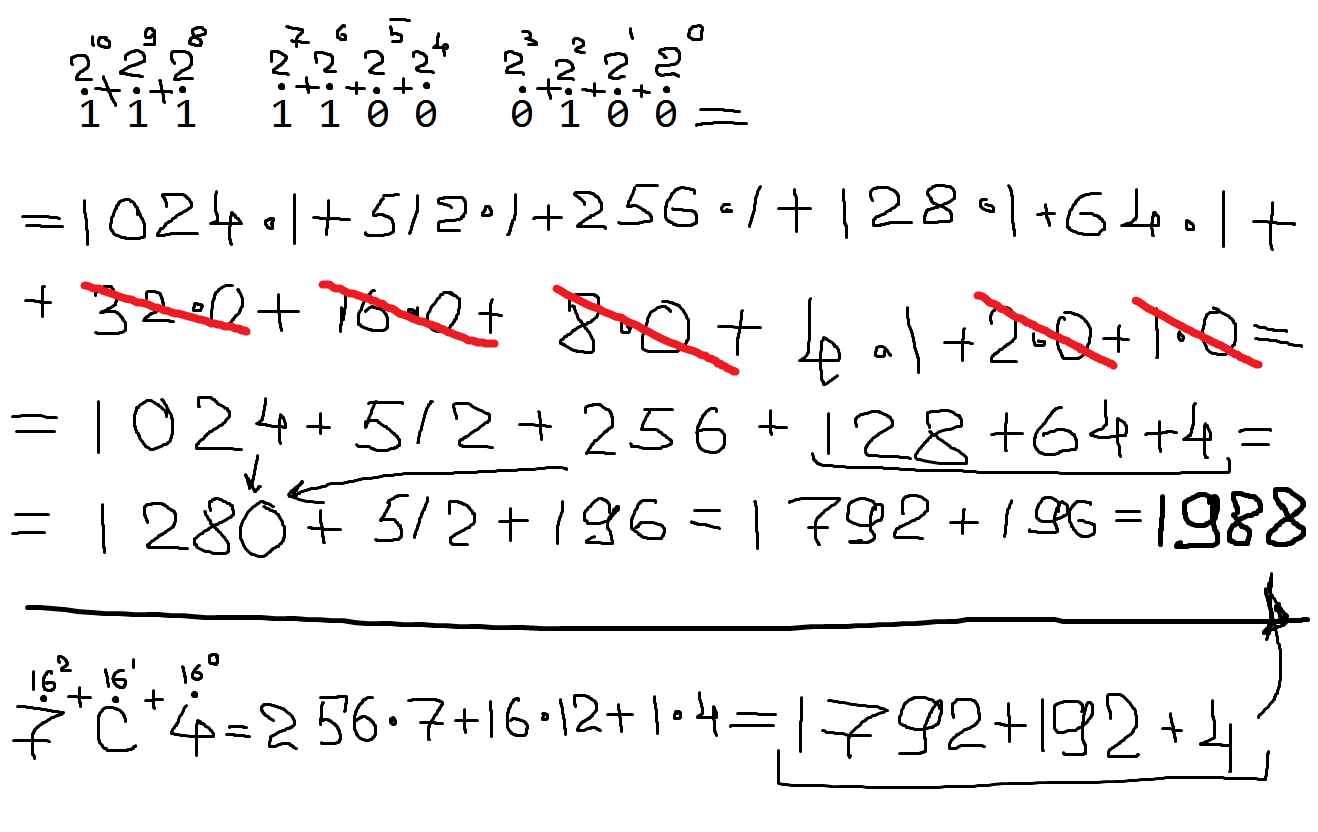 2¹⁰ + 2⁹ + 2⁸ 2⁷ + 2⁶ + 2⁵ + 2⁴ 2³ + 2² + 2¹ + 2⁰
· · · · · · · · · · ·
1 1 1 1 1 0 0 0 1 0 0 =
= 1024·1 + 512·1 + 256·1 + 128·1 + 64·1 +
+ 32·0 + 16·0 + 8·0 + 4·1 + 2·0 + 1·0 =
= 1024 + 512 + 256 + 128 + 64 + 4 =
= 1280 + 512 + 196 = 1792 + 196 = 1988
16² + 16¹ + 16⁰
· · ·
7 C 4 = 256·7 + 16·12 + 1·4 = 1792 + 192 + 4